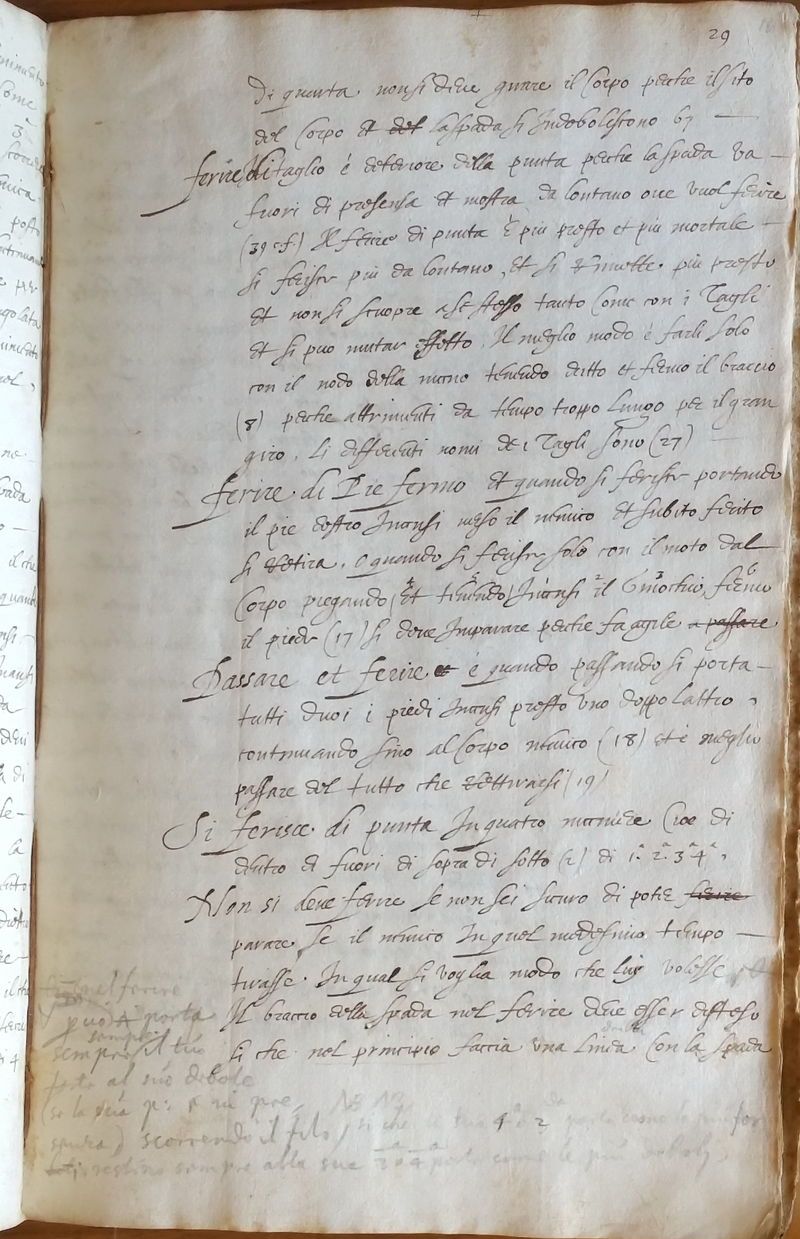 29
Di quarta non si deve girare il Corpo perche il sito
del Corpo et del la spada si Indoboliscono 67
ferire di taglio è deteriore della punta perche la spada va
fuori di presensa et mostra da lontano ove vuol ferire
(39 e f.) Il ferire di punta È piu presto et piu mortale
si ferisce piu da lontano, et si rimette piu presto
et non si scuopre a se stesso tanto Come con i Tagli
et si puo mutar effetto. Il meglio modo è farli solo
con il nodo della mano tenendo dritto et fermo il braccio
(8) perche altrimenti da tempo troppo Lungo per il gran
giro. Li differenti nomi de i Tagli sono (27)
ferire di Pie fermo et quando si ferisce portando
il pie destro Inansi verso il nemico et subito ferito
si retira. o quando si ferisce solo con il moto dal
Corpo piegando (et tenendo) Inansi il Ginochio, fermo
il piede (17) si deve Imparare perche fa agile a passare
Passare et ferire et è quando passando si porta
tutti duoi i piedi Inansi presto uno doppo lattro,
continuando sino al Corpo nemico (18) et è meglio
passare del tutto che rettirarsi (19)
Si ferisce di punta In quatro maniere Cioe di
dentro di fuori di sopra di sotto (2) di 1.ª 2.ª 3.ª 4.ª
Non si deve ferire se non sei sicuro di poter ferire
parare se il nemico In quel medesimo tempo
tirasse In qual si voglia modo che lui volesse
Il braccio della spada nel ferire deve esser disteso
si che nel principio faccia una linea Con la spada
nel ferire
porta
sempre
sempre il tuo
forte al suo debole
(se la sua
spada) scorrendo il filo si che la sua 4 o 2 porta come
restino sempre alla sue 3 o 4 porta come le piu deboli